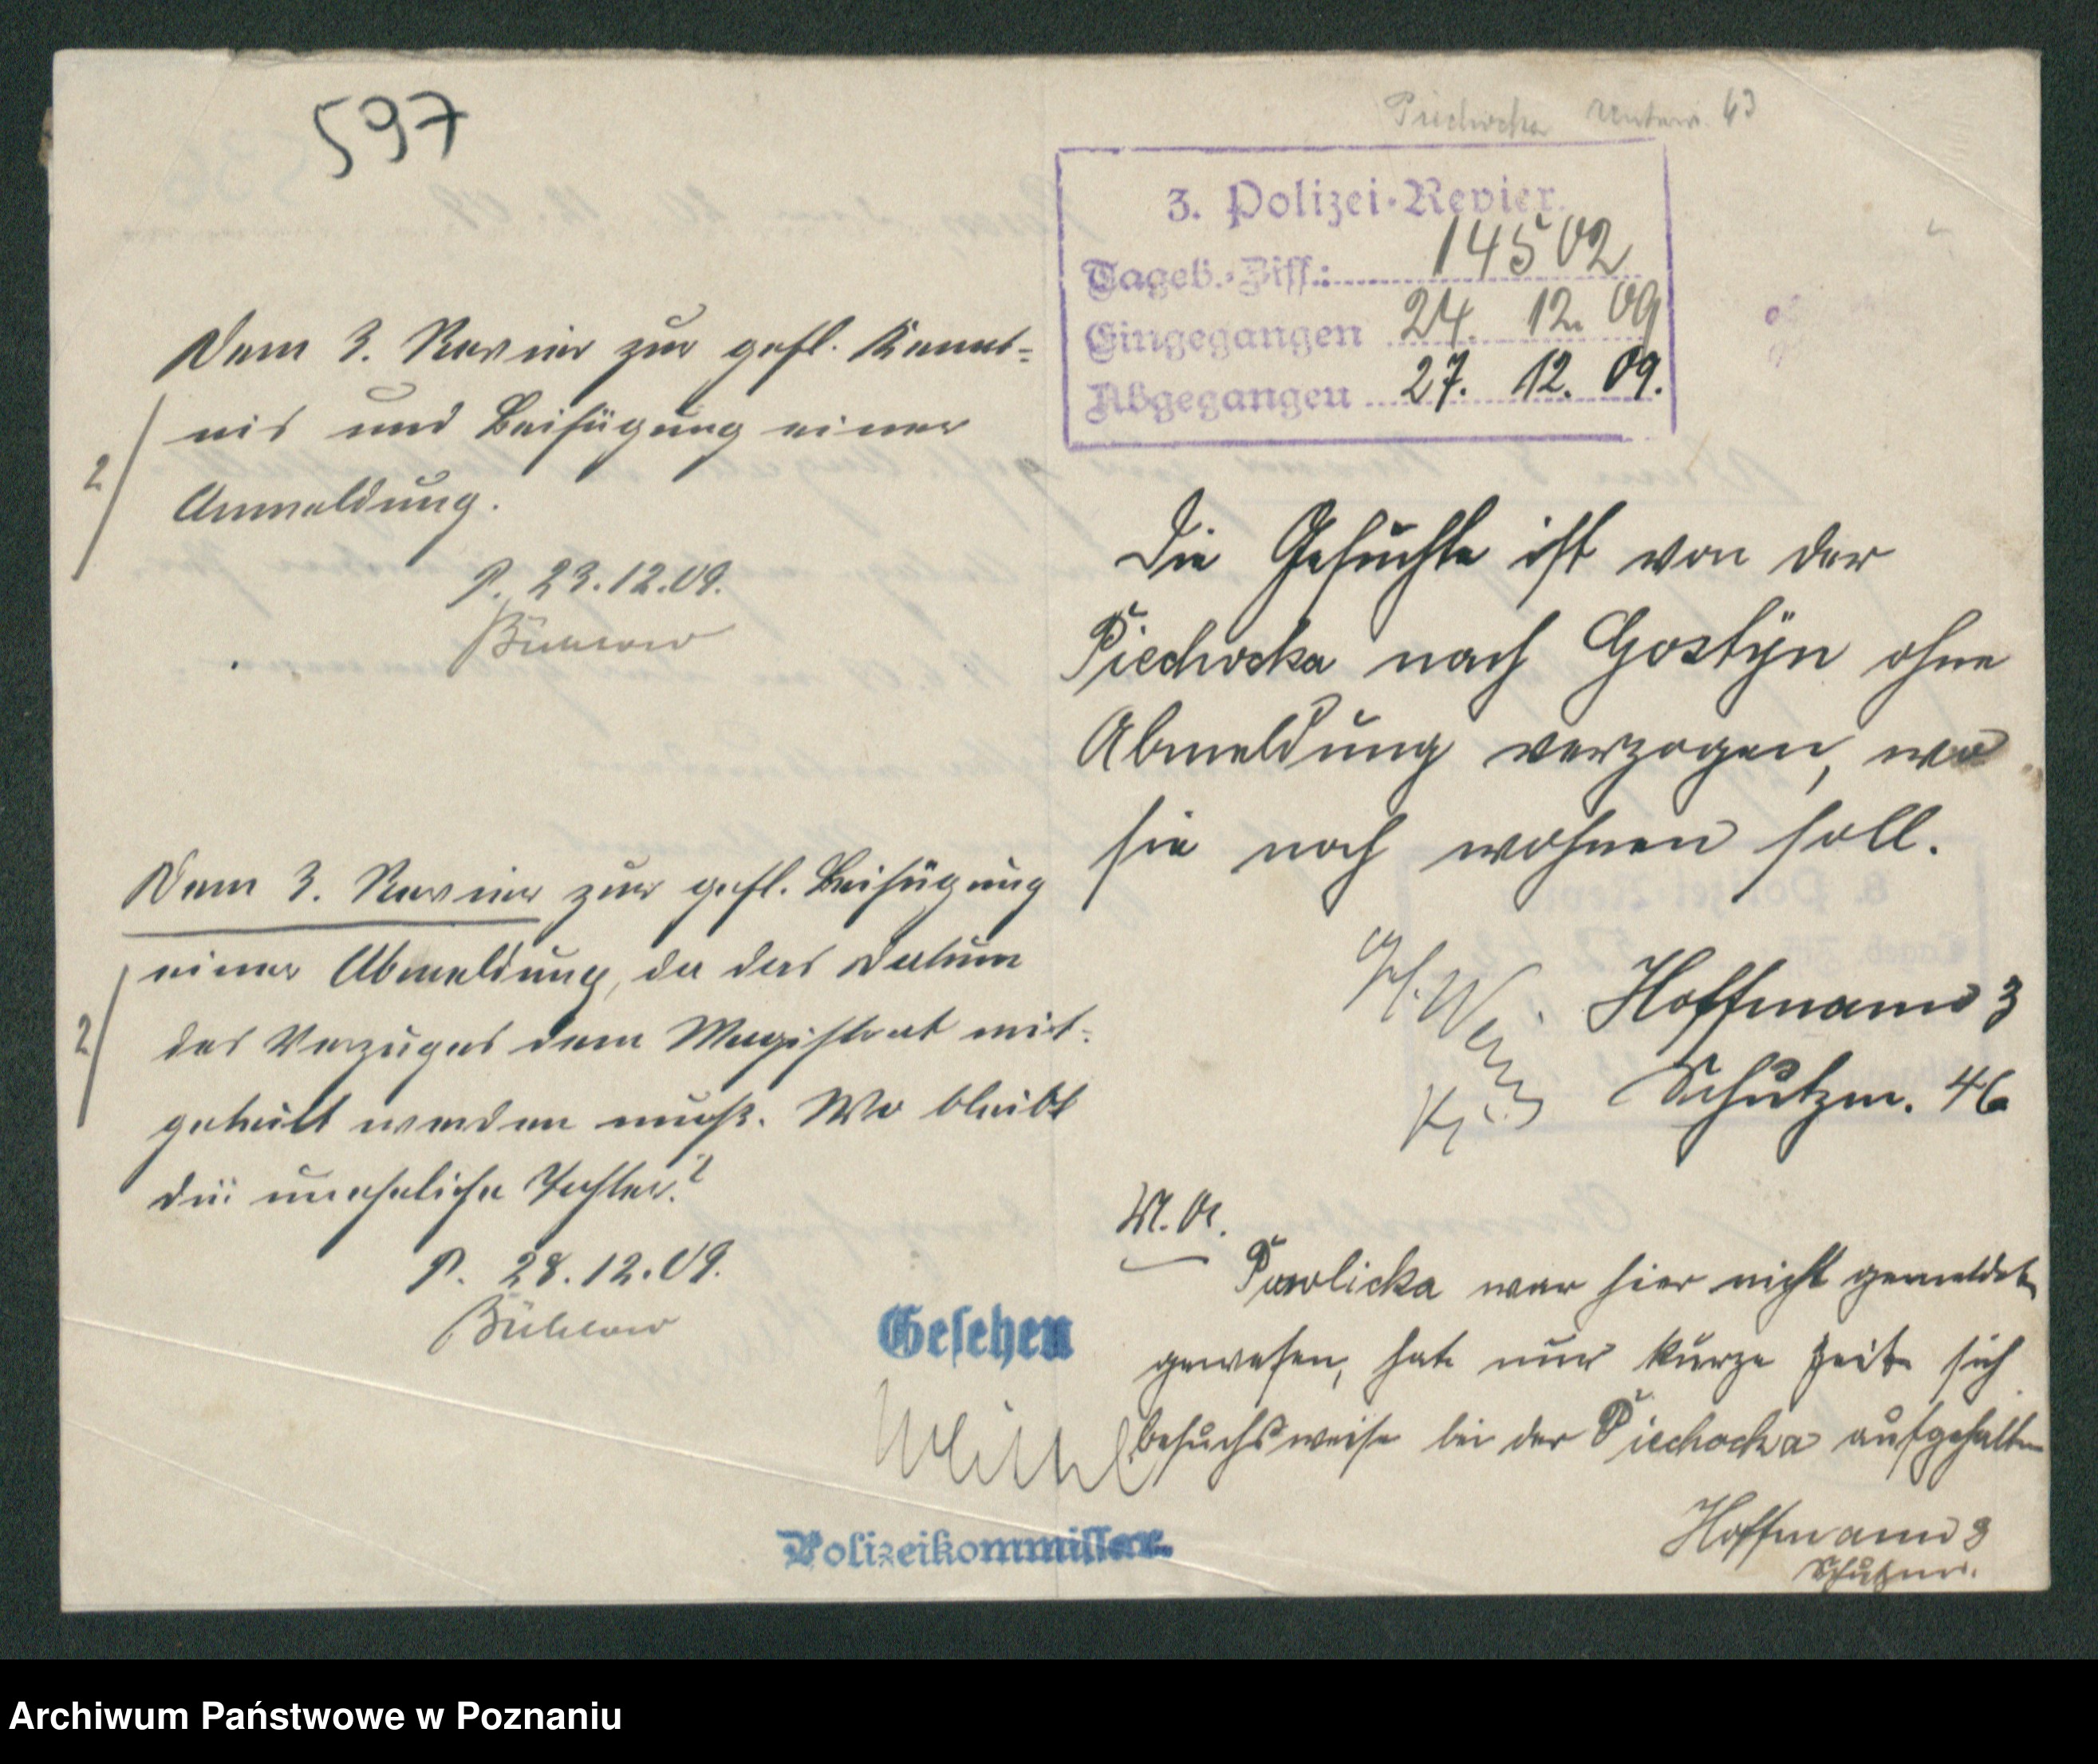 597
Dem 3. Revier zur gefl. Kennt=
nis und Beifügung einer
2/
Anmeldung.
P. 23.12.09.
Dem 3. Revier zur gefl. Beifügung
einer Abmeldung, da das Datum
2/
des Verzuges dem Magistrat mit=
geteilt werden muß. Wo bleibt
die uneheliche Tochter?
P. 28.12.09.
Gesehen
Polizeikommissar.
Piechocka Unterw. 43
3. Polizei-Revier.
Tageb.-Ziff.: 14502
Eingegangen 24. 12. 09
Abgegangen 27. 12. 09.
Die Gesuchte ist von der
Piechocka nach Gostÿn ohne
Abmeldung verzogen, wo
sie noch wohnen soll.
Hoffmann 3
Schutzm. 46
M.A.
Pawlicka war hier nicht gemeldet
gewesen, hat nur kurze Zeit sich
besuchsweise bei der Piechocka aufgehalten
Hoffmann 3
Schutzm.
Archiwum Państwowe w Poznaniu